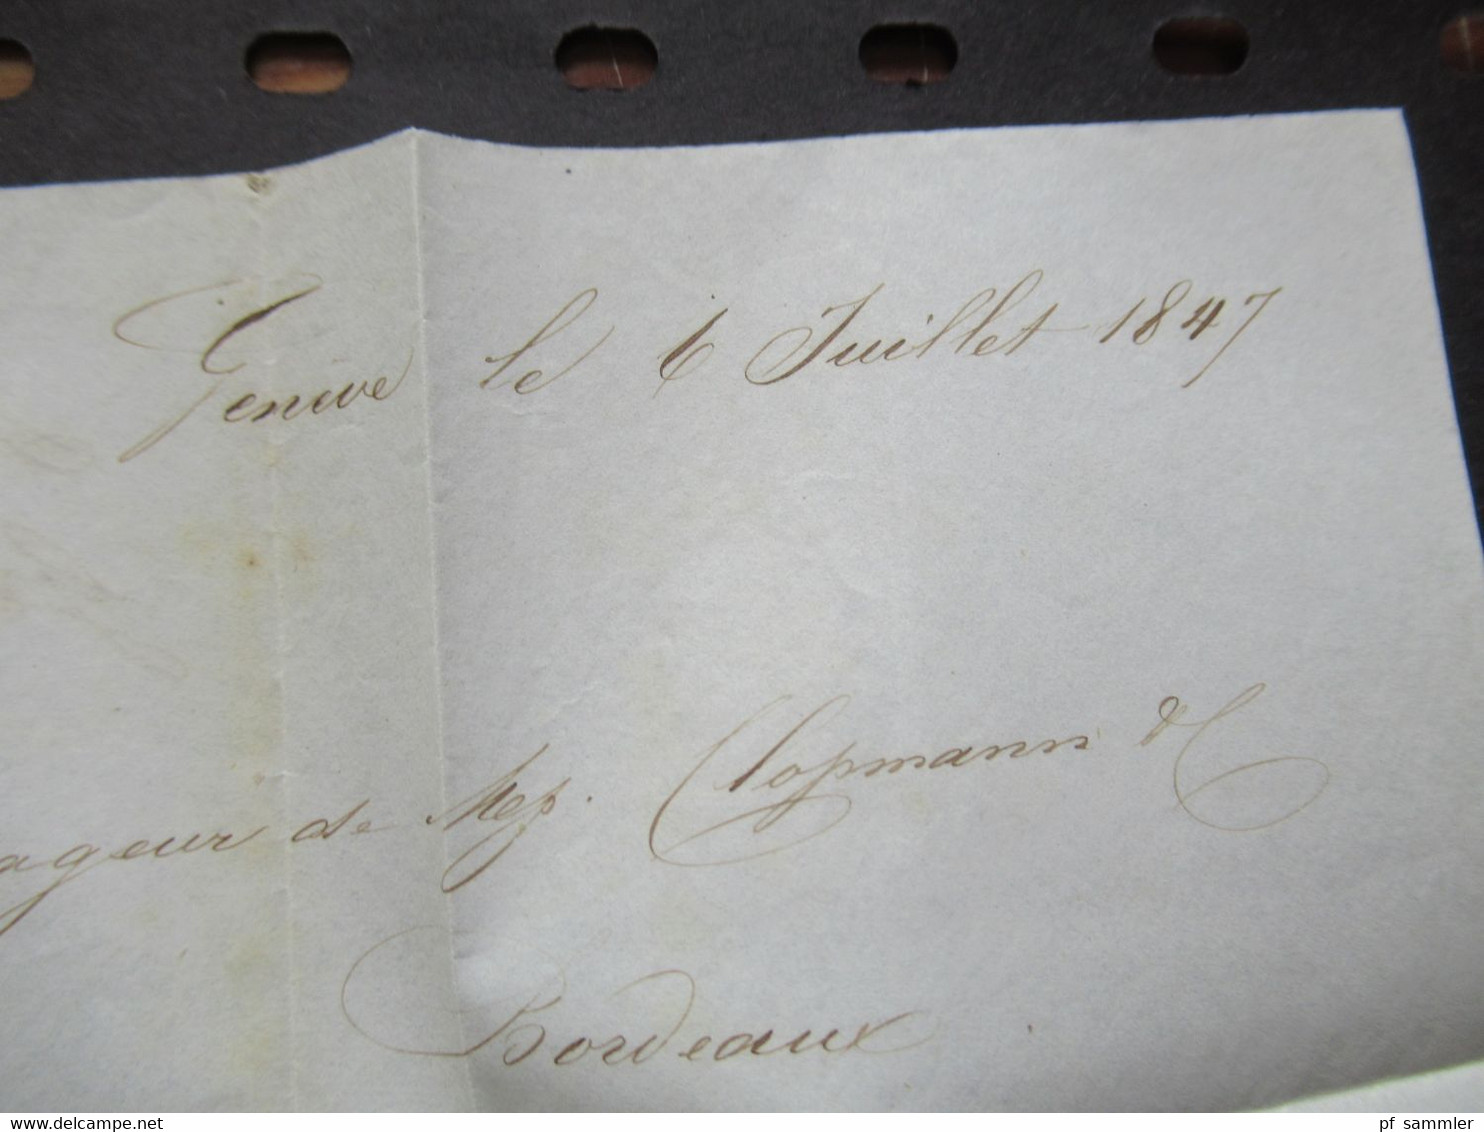 Genève le 6 Juillet 1847
ageur de Mess. Clopmann & C
Bordeaux
delcampe.net
pf_sammler